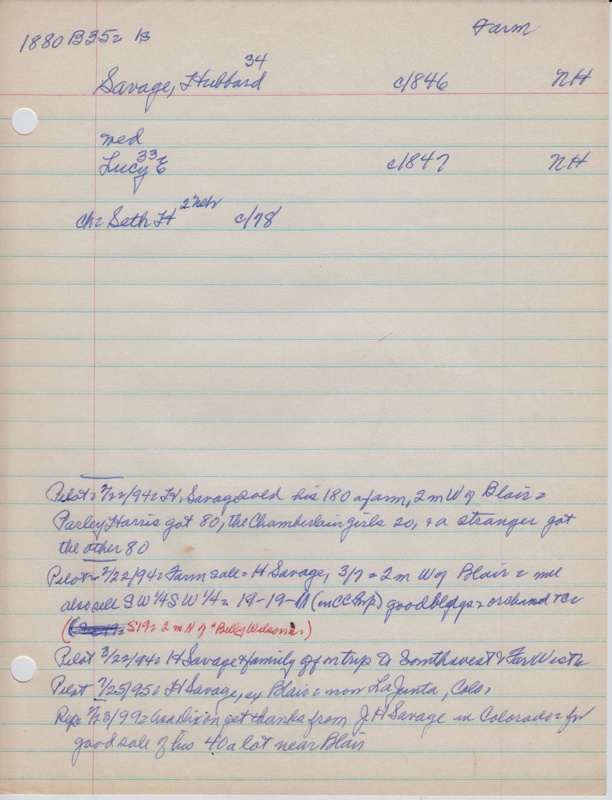 1880 B352 B
Farm
Savage, Hubbard 34 c/846 NH
med
Lucy E 33 c/847 NH
ch= Seth H 2 Nebr c/78
Pilot= 2/22/94= H. Savage sold his 180 a farm, 2 m W of Blair=
Parley Harris got 80, the Chamberlain girls 20, & a stranger got
the other 80
Pilot= 2/22/94= Farm sale= H Savage, 3/7= 2 m W of Blair=
also sell SW 1/4 SW 1/4= 19-19-11 (in CC Twp) good bldgs= orchard &c
S19= 2 m N of "Billy Wilsons.)
Pilot 3/22/94= H Savage & family off on trip to Southwest & Far West=
Pilot 7/25/95= H Savage, ex Blair= now LaJunta, Colo.
Rep= 23/99= Dixon get thanks from J H Savage in Colorado= for
good sale of his 40 a lot near Blair